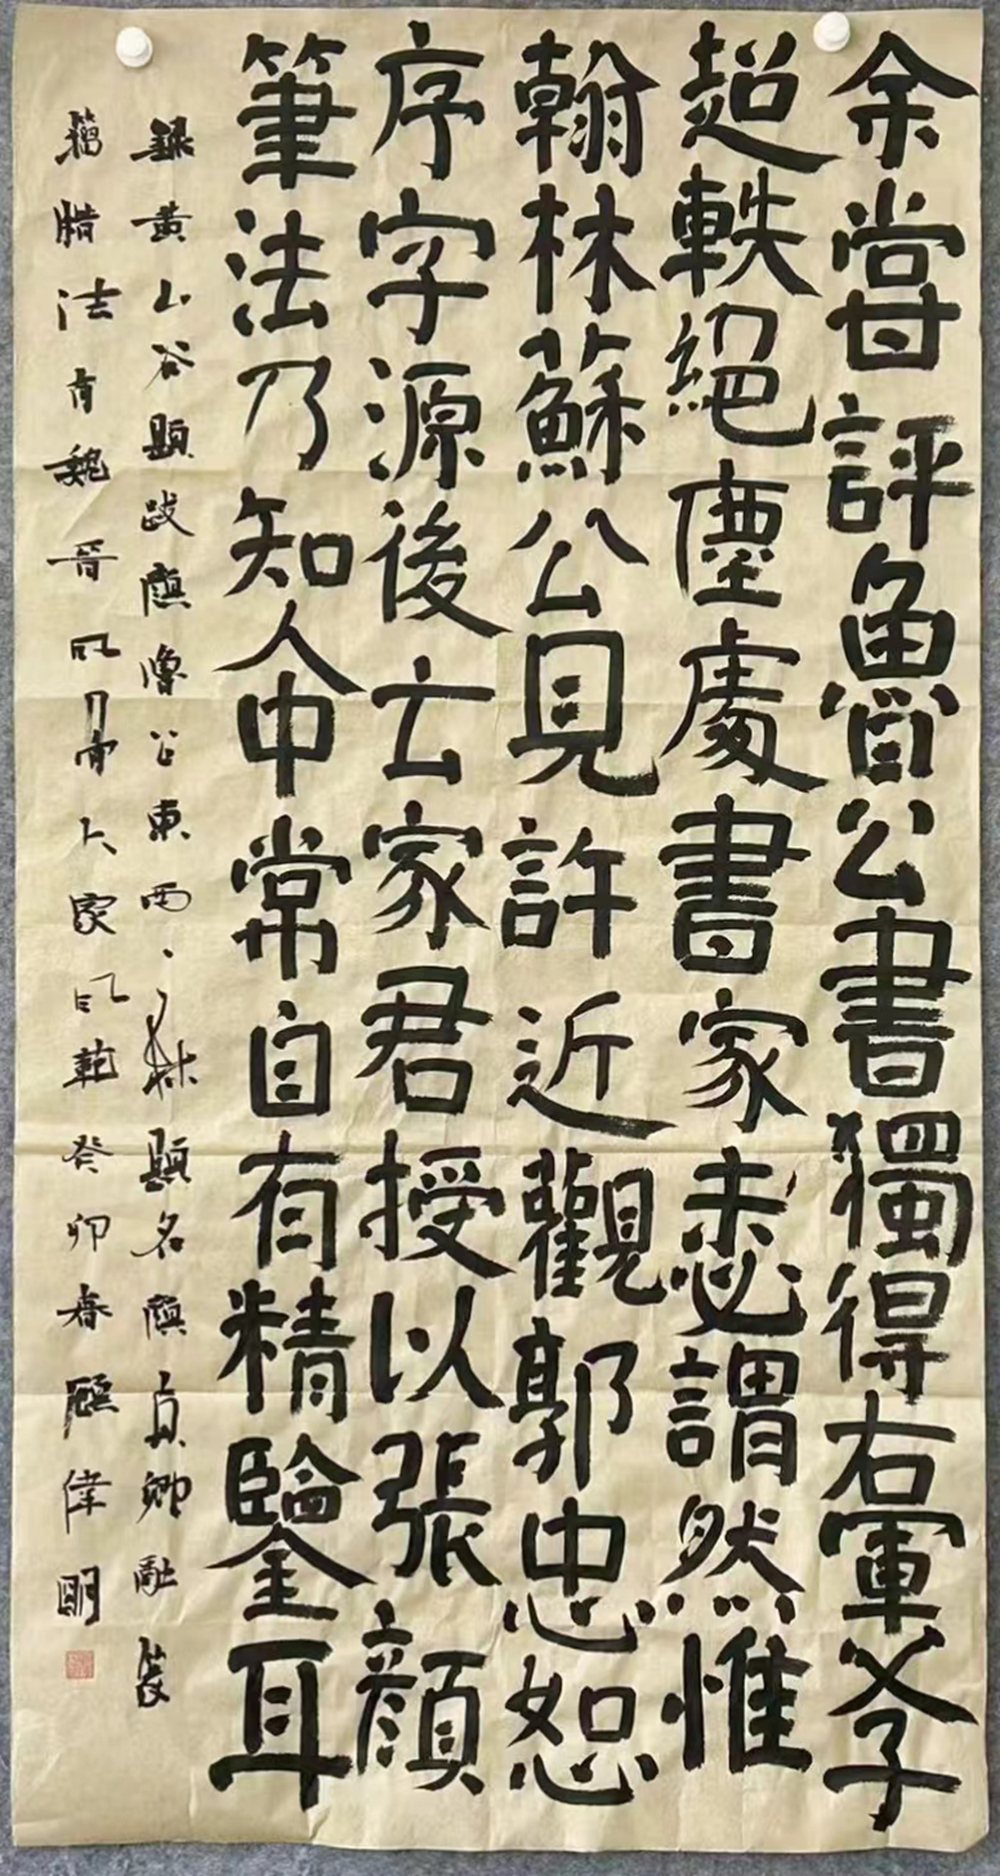 余嘗評魯公書獨得右軍父子
超軼絕塵處書家未必謂然惟
翰林蘇公見許近觀郭忠恕
序字源後云家君授以張顏
筆法乃知人中常自有精鑒耳
錄黃山谷題跋顏魯公東西二林題名顏真卿融篆
籀腊法有魏晉風骨大家風範癸卯春顧偉明